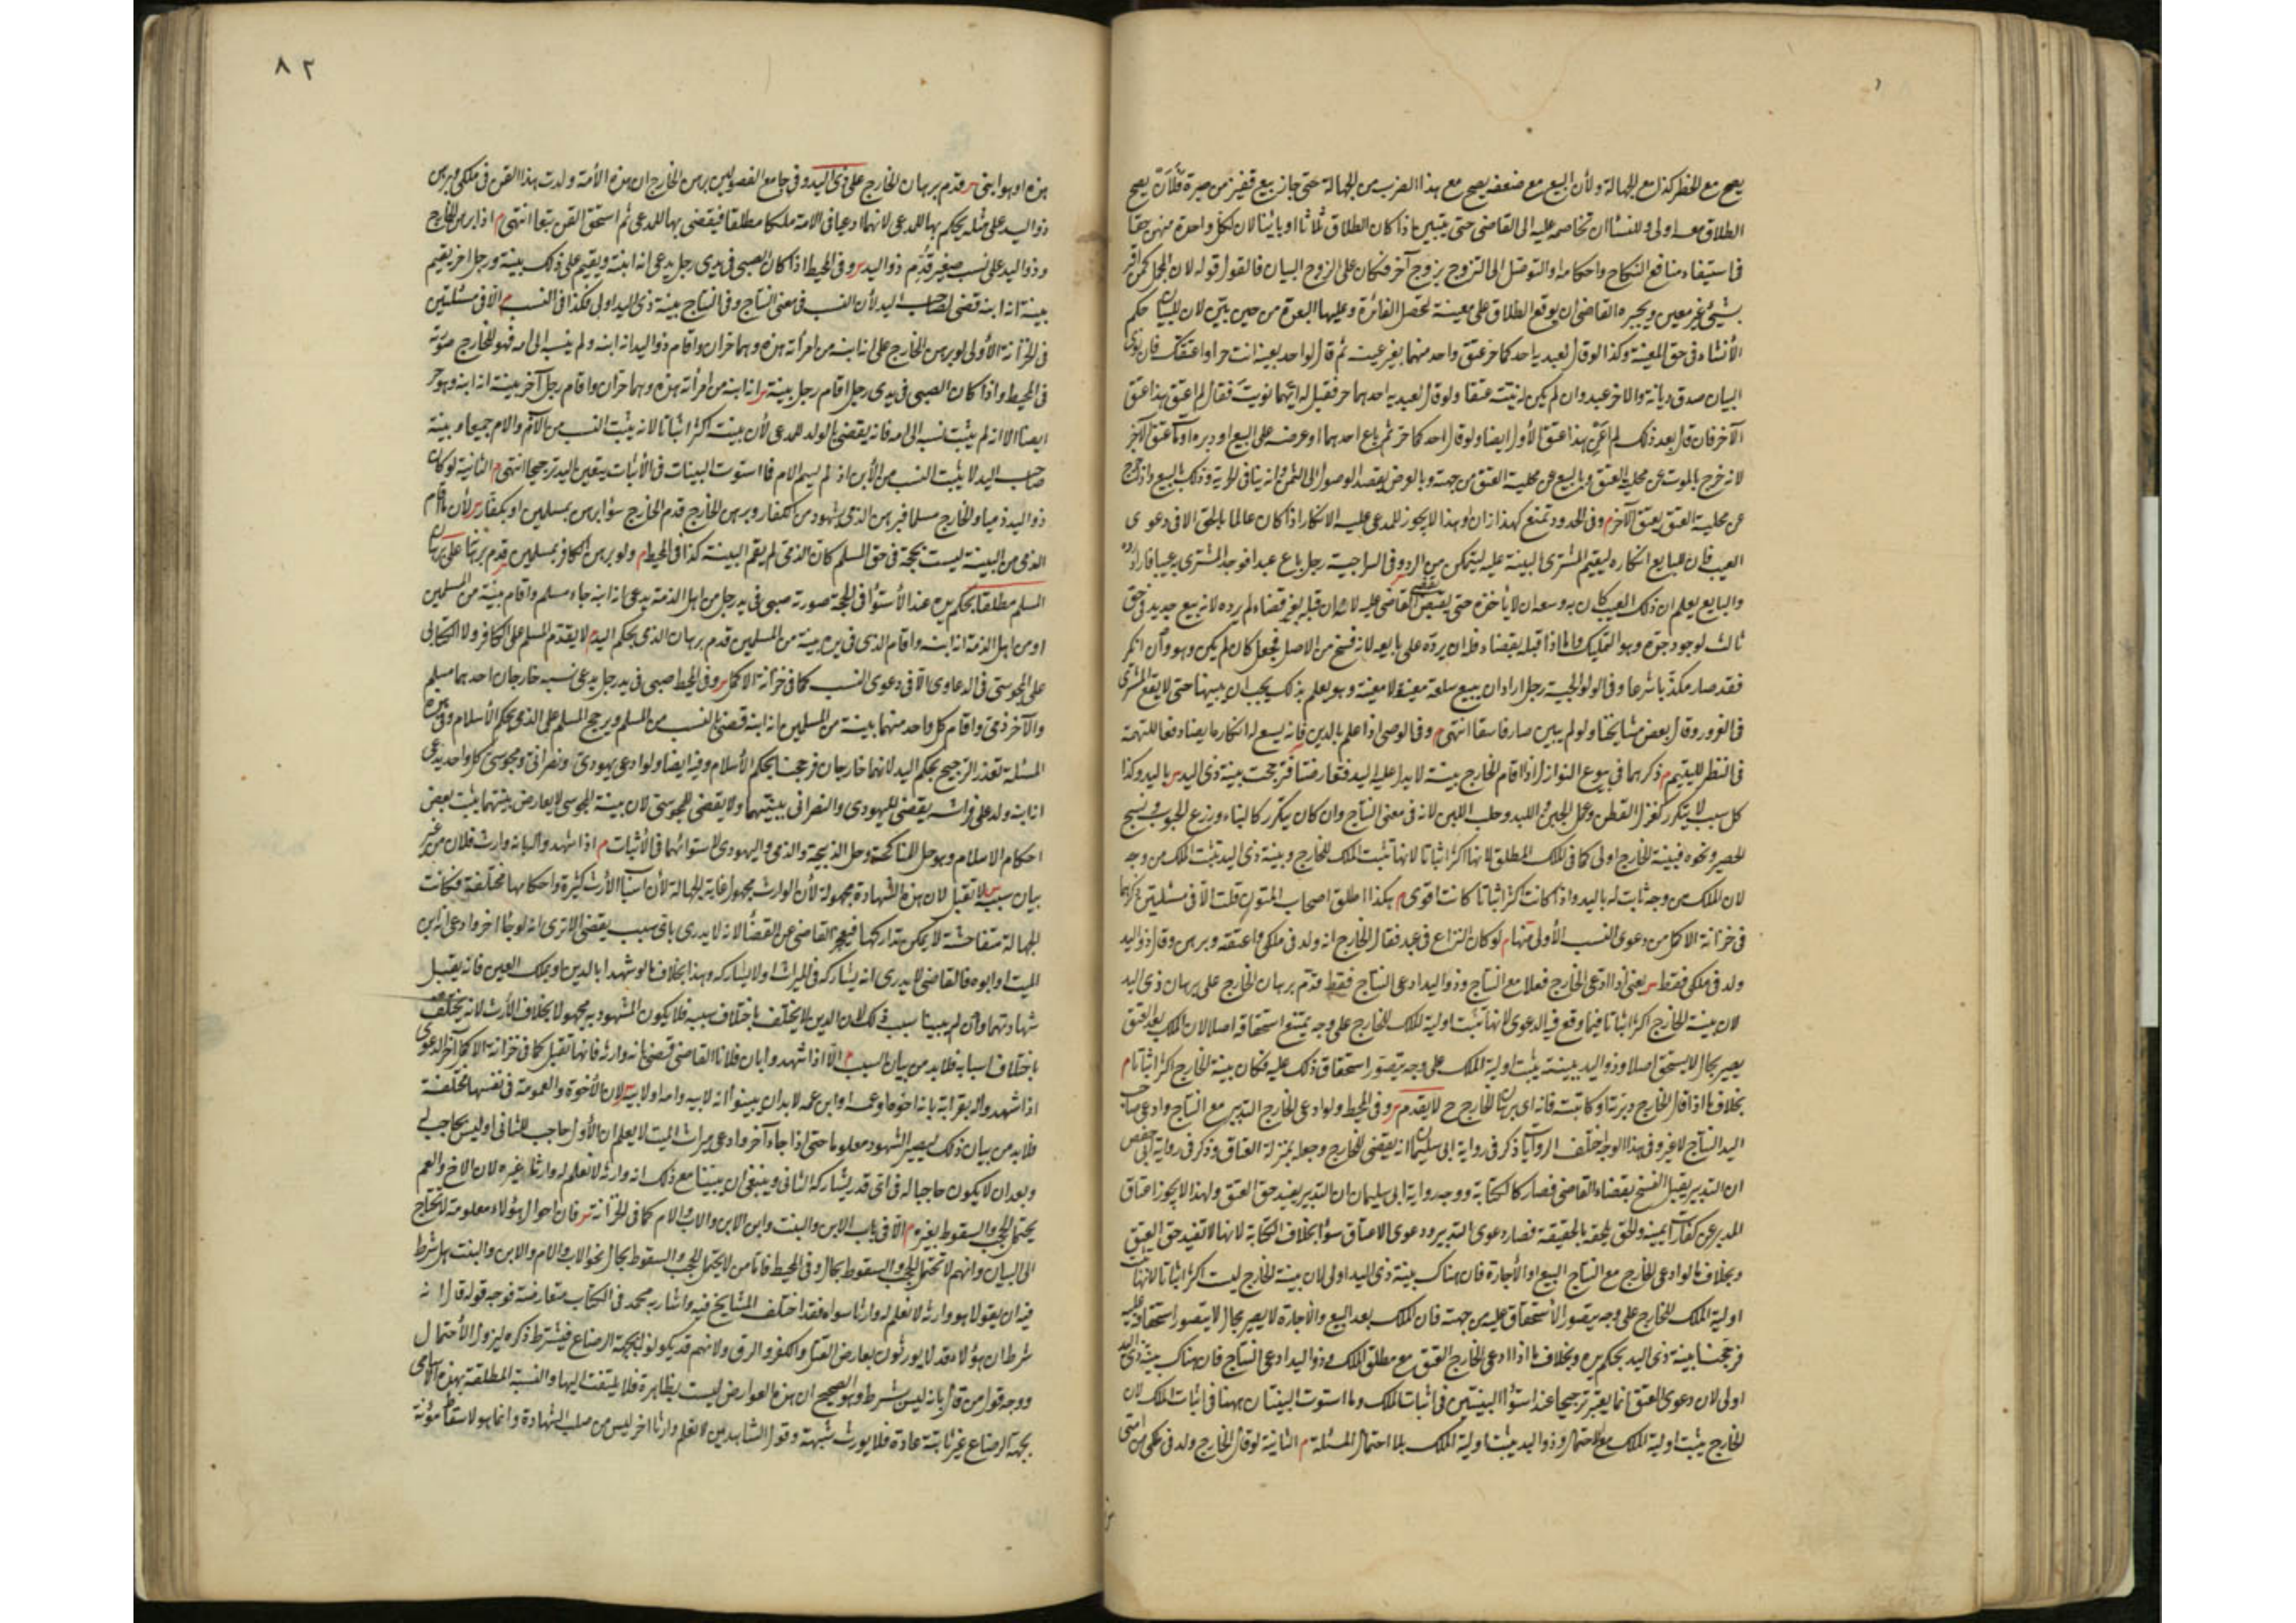 يصح مع الخطر كذا مع الجهالة ولأن البيع مع ضعفه يصح مع هذا الضرب من الجهالة حتى جاز بيع قفيز من صبرة فلأن يصح
الطلاق معه اولى وللنساء ان تخاصمه عليه الى القاضى حتى يتبين اذا كان الطلاق ثلاثا او بائنا لان لكل واحدة منهن حقا
فى استيفاء منافع النكاح واحكامه او التوصل الى التزوج بزوج آخر فكان على الزوج البيان فالقول قوله لان المجمل كمن اقر
بشئ غير معين ويجبره القاضى ان يوقع الطلاق على معينة لتحصل الفائدة وعليها العدة من حين بيّن لان للبيان حكم
الأنشاء فى حق المعينة وكذا لو قال لعبديه احدكما حر عتق واحد منهما بغير عينه ثم قال لواحد بعينه انت حر او اعتقتك فان نوى
البيان صدق ديانة والآخر عبد وان لم يكن له نيته عتقا ولو قال لعبديه احدهما حر فقيل له ايّهما نويت فقال لم اعن هذا عتق
الآخر فان قال بعد ذلك لم اعن هذا عتق الأول ايضا ولو قال احدكما حر ثم باع احدهما او عرضه على البيع او دبره او مات عتق الآخر
لانه خرج بالموت عن محلية العتق وبالبيع عن محلية العتق من جهته وبالعرض يقصد الوصول الى الثمن وانه ينافى الحرية وذلك بالبيع واذا خرج
عن محلية العتق يعتق الآخر م وفى الحدود تمنع كهذا زان او هذا لا يجوز للمدعى عليه الانكار اذا كان عالما بالحق الا فى دعوى
العيب فان للبايع انكاره ليقيم المشترى البينة عليه ليتمكن من الرد وفى السراجية رجل باع عبدا فوجد المشترى به عيبا فاراد رده
والبايع يعلم ان ذلك العيب كان به وسعه ان لا يأخذه حتى يقضى القاضى عليه لانه ان قبله بغير قضاء لم يرده لانه بيع جديد فى حق
ثالث لوجود حده وهو التمليك واما اذا قبله بقضاء فله ان يرده على بايعه لانه فسخ من الاصل فجعل كان لم يكن وهو وان انكر
فقد صار مكذبا شرعا وفى الولوالجية رجل اراد ان يبيع سلعة معيبة وهو يعلم بذلك يجب ان يبينها حتى لا يقع المشترى
فى الغرور وقال بعض مشايخنا ولو لم يبين صار فاسقا انتهى م وفى الوصى اذا علم بالدين فانه يسع له انكاره ايضا دفعا للتهمة
فى النظر لليتيم م ذكرهما فى بيوع النوازل اذا اقام الخارج بينة لا يد له عليه ليد فتعارضتا فترجحت بينة ذى اليد س باليد وكذا
كل سبب لا يتكرر كغزل القطن وعمل الجبن واللبد وحلب اللبن لانه فى معنى النتاج وان كان يتكرر كالبناء وزرع الحبوب ونسج
الحصير ونحوه فبينة الخارج اولى كما فى الملك المطلق لانها اكثر اثباتا لانها تثبت الملك للخارج وبينة ذى اليد تثبت الملك من وجه
لان الملك من وجه ثابت له باليد واذا كانت اكثر اثباتا كانت اقوى م هكذا اطلق اصحاب المتون قلت الا فى مسئلتين ذكرهما
فى خزانة الاكمل من دعوى النسب الأولى منها م لو كان النزاع فى عبد فقال الخارج انه ولد فى ملكى واعتقه وبرهن وقال ذو اليد
ولد فى ملكى فقط س يعنى اذا ادعى الخارج فعلا مع النتاج وذو اليد ادعى النتاج فقط قدّم برهان الخارج على برهان ذى اليد
لان بينة الخارج اكثر اثباتا فيما وقع فى الدعوى لانها تثبت اولية الملك للخارج على وجه يمتنع استحقاقه اصلا لان الملك بعد العتق
يصير بحال لا يستحق اصلا وذو اليد ببينته يثبت اولية الملك على وجه يتصور استحقاق ذلك عليه فكان بينة الخارج اكثر اثباتا م
بخلاف ما اذا قال الخارج دبرته او كاتبته فانه اى برهان الخارج ح لا يقدم س وفى المحيط ولو ادعى الخارج التدبير مع النتاج وادعى صاحب
اليد النتاج لا غير وفى هذا الوجه اختلف الروايات ذكر فى رواية ابى سليمان انه يقضى للخارج وجعله بمنزلة العتاق وذكر فى رواية ابى حفص
ان التدبير يقبل الفسخ بقضاء القاضى فصار كالكتابة ووجه رواية ابى سليمان ان التدبير يفيد حق العتق ولهذا لا يجوز اعتاق
المدبر عن كفارة يمينه والحق يلحقه بالحقيقة فصار دعوى التدبير ودعوى الاعتاق سواء بخلاف الكتابة لانها لا تفيد حق العتق
وبخلاف ما لو ادعى الخارج مع النتاج البيع او الأجارة فان هناك بينة ذى اليد اولى لان بينة الخارج ليست اكثر اثباتا لانها تثبت
اولية الملك للخارج على وجه يتصور الأستحقاق عليه من جهته فان الملك بعد البيع والأجارة لا يصير بحال لا يتصور استحقاقه عليه
فرجحنا بينة ذى اليد بحكم يده وبخلاف ما اذا ادعى الخارج العتق مع مطلق الملك وذو اليد ادعى النتاج فان هناك بينة ذى اليد
اولى لان دعوى العتق انما يعتبر ترجيحا عند استواء البينتين فى اثبات الملك وما استوت البينتان ههنا فى اثبات الملك لان
الخارج يثبت اولية الملك مع الاحتمال وذو اليد يثبت اولية الملك بلا احتمال المسئلة م الثانية لو قال الخارج ولد فى ملكى من امتى
٨٢
هذه او هو ابنى س قدم برهان الخارج على ذى اليد وفى جامع الفصولين برهن الخارج ان هذه الأمة ولدت هذا القن فى ملكى وبرهن
ذو اليد على مثله يحكم بها للمدعى لانهما ادعيا فى الامة ملكا مطلقا فيقضى بها للمدعى ثم استحق القن تبعا انتهى م اذا برهن الخارج
وذو اليد على نسب صغير قدّم ذو اليد س وفى المحيط اذا كان الصبى فى يدى رجل يدعى انه ابنه ويقيم على ذلك بينة ورجل اخر يقيم
بينة انه ابنه قضى لصاحب اليد لأن النسب فى معنى النتاج وفى النتاج بينة ذى اليد اولى فكذا فى النسب م الا فى مسئلتين
فى الخزانة الأولى لو برهن الخارج على انه ابنه من امرأته هذه وهما حران واقام ذو اليد انه ابنه ولم ينسبه الى امه فهو للخارج صورته
فى المحيط واذا كان الصبى فى يدى رجل اقام رجل بينة س انه ابنه من امرأته هذه وهما حران واقام رجل آخر بينة انه ابنه وهو حر
ايضا الا انه لم يثبت نسبه الى امه فانه يقضى بالولد للمدعى لأن بينته اكثر اثباتا لانه يثبت النسب من الأب والام جميعا وبينة
صاحب اليد لا يثبت النسب من الأبن اذ لم يسم الام فما استوت البينات فى الأثبات يتعين باليد ترجيحا انتهى م الثانية لو كان
ذو اليد ذميا والخارج مسلما فبرهن الذمى بشهود من الكفار وبرهن الخارج قدم الخارج سواء برهن بمسلمين او بكفار س لأن ما اقام
الذمى من البينة ليست بحجة فى حق المسلم كان الذمى لم يقم البينة كذا فى المحيط م ولو برهن الكافر بمسلمين قدم برهانه على برهان
المسلم مطلقا بحكم يده عند الأستواء فى الحجة صورته صبى فى يد رجل من اهل الذمة يدعى انه ابنه جاء مسلم واقام بينة من المسلمين
او من اهل الذمة انه ابنه واقام الذى فى يده بينة من المسلمين قدم برهان الذمى بحكم اليد م لا يقدم المسلم على الكافر ولا الكتابى
على المجوسى فى الدعاوى الا فى دعوى النسب كما فى خزانة الاكمل س وفى المحيط صبى فى يد رجل يدعى نسبه خارجان احدهما مسلم
والآخر ذمى واقام كل واحد منهما بينة من المسلمين انه ابنه قضى بالنسب من المسلم ويرجح المسلم على الذمى بحكم الأسلام وفى هذه
المسئلة تعذر الترجيح بحكم اليد لانهما خارجان فرجحنا بحكم الأسلام وفيه ايضا ولو ادعى يهودى ونصرانى ومجوسى كل واحد يدعى
انه ابنه ولد على فراشه يقضى لليهودى والنصرانى ببينتهما ولا يقضى للمجوسى لان بينة المجوسى لا يعارض بينتهما يثبت بعض
احكام الاسلام وهو حل المناكحة وحل الذبيحة والذمى واليهودى لاستوائهما فى الأثبات م اذا شهدوا له بانه وارث فلان من غير
بيان سببه لا تقبل لان هذه الشهادة مجهولة لأن الوارث مجهول غاية الجهالة لأن اسباب الأرث كثيرة واحكامها مختلفة فكانت
الجهالة متفاحشة لا يمكن تداركها فيعجز القاضى عن القضاء لانه لا يدرى باى سبب يقضى الا ترى انه لو جاء اخر وادعى انه ابن
الميت او ابوه فالقاضى لا يدرى انه يشاركه فى الميراث او لا يشاركه وهذا بخلاف ما لو شهدا بالدين او بملك العين فانه يقبل
شهادتهما وان لم يبينا سبب ذلك لان الدين لا يختلف باختلاف سببه فلا يكون المشهود به مجهولا بخلاف الأرث لانه يختلف
باختلاف اسبابه فلا بد من بيان السبب م الا اذا شهدوا بان فلانا القاضى قضى بانه وارثه فانها تقبل كما فى خزانة الاكمل آخر الدعوى
اذا شهدوا له بقرابة بانه اخوه او عمه او ابن عمه لا بد ان يبينوا انه لابيه وامه او لابيه س لان الأخوة والعمومة فى نفسها مختلفة
فلا بد من بيان ذلك ليصير المشهود معلوما حتى اذا جاء آخر وادعى ميراث الميت لا يعلم ان الأول حاجب للثانى او ليس بحاجب له
وبعد ان لا يكون حاجبا له فى اى قدر يشاركه الثانى وينبغى ان يبينا مع ذلك انه وارثه لا نعلم له وارثا غيره لان الاخ والعم
يحتمل الحجب والسقوط بغيره م الا فى باب الابن والبنت وابن الابن والاب والام كما فى الخزانة س فان احوال هؤلاء معلومة لا تحتاج
الى البيان وانهم لا تحتمل الحجب والسقوط بحال وفى المحيط فاما من لا يحتمل الحجب والسقوط بحال نحو الاب والام والابن والبنت هل شرط
فيه ان يقولا هو وارثه لا نعلم له وارثا سواه فقد اختلف المشايخ فيه واشار به محمد فى الكتاب متعارضة فوجه قوله قال انه
شرط ان هؤلاء قد لا يورثون بعارض القتل والكفر والرق ولانهم قد يكونوا بجهة الرضاع فيشترط ذكره ليزول الأحتمال
ووجه قول من قال بانه ليس بشرط وهو الصحيح ان هذه العوارض ليست بظاهرة فلا يلتفت اليها والنسبة المطلقة بهذه الاسامى
بجهة الرضاع غير ثابتة عادة فلا يورث شبهة وقول الشاهدين لا نعلم وارثا اخر ليس من صلب الشهادة وانما هو لاسقاط مؤنة